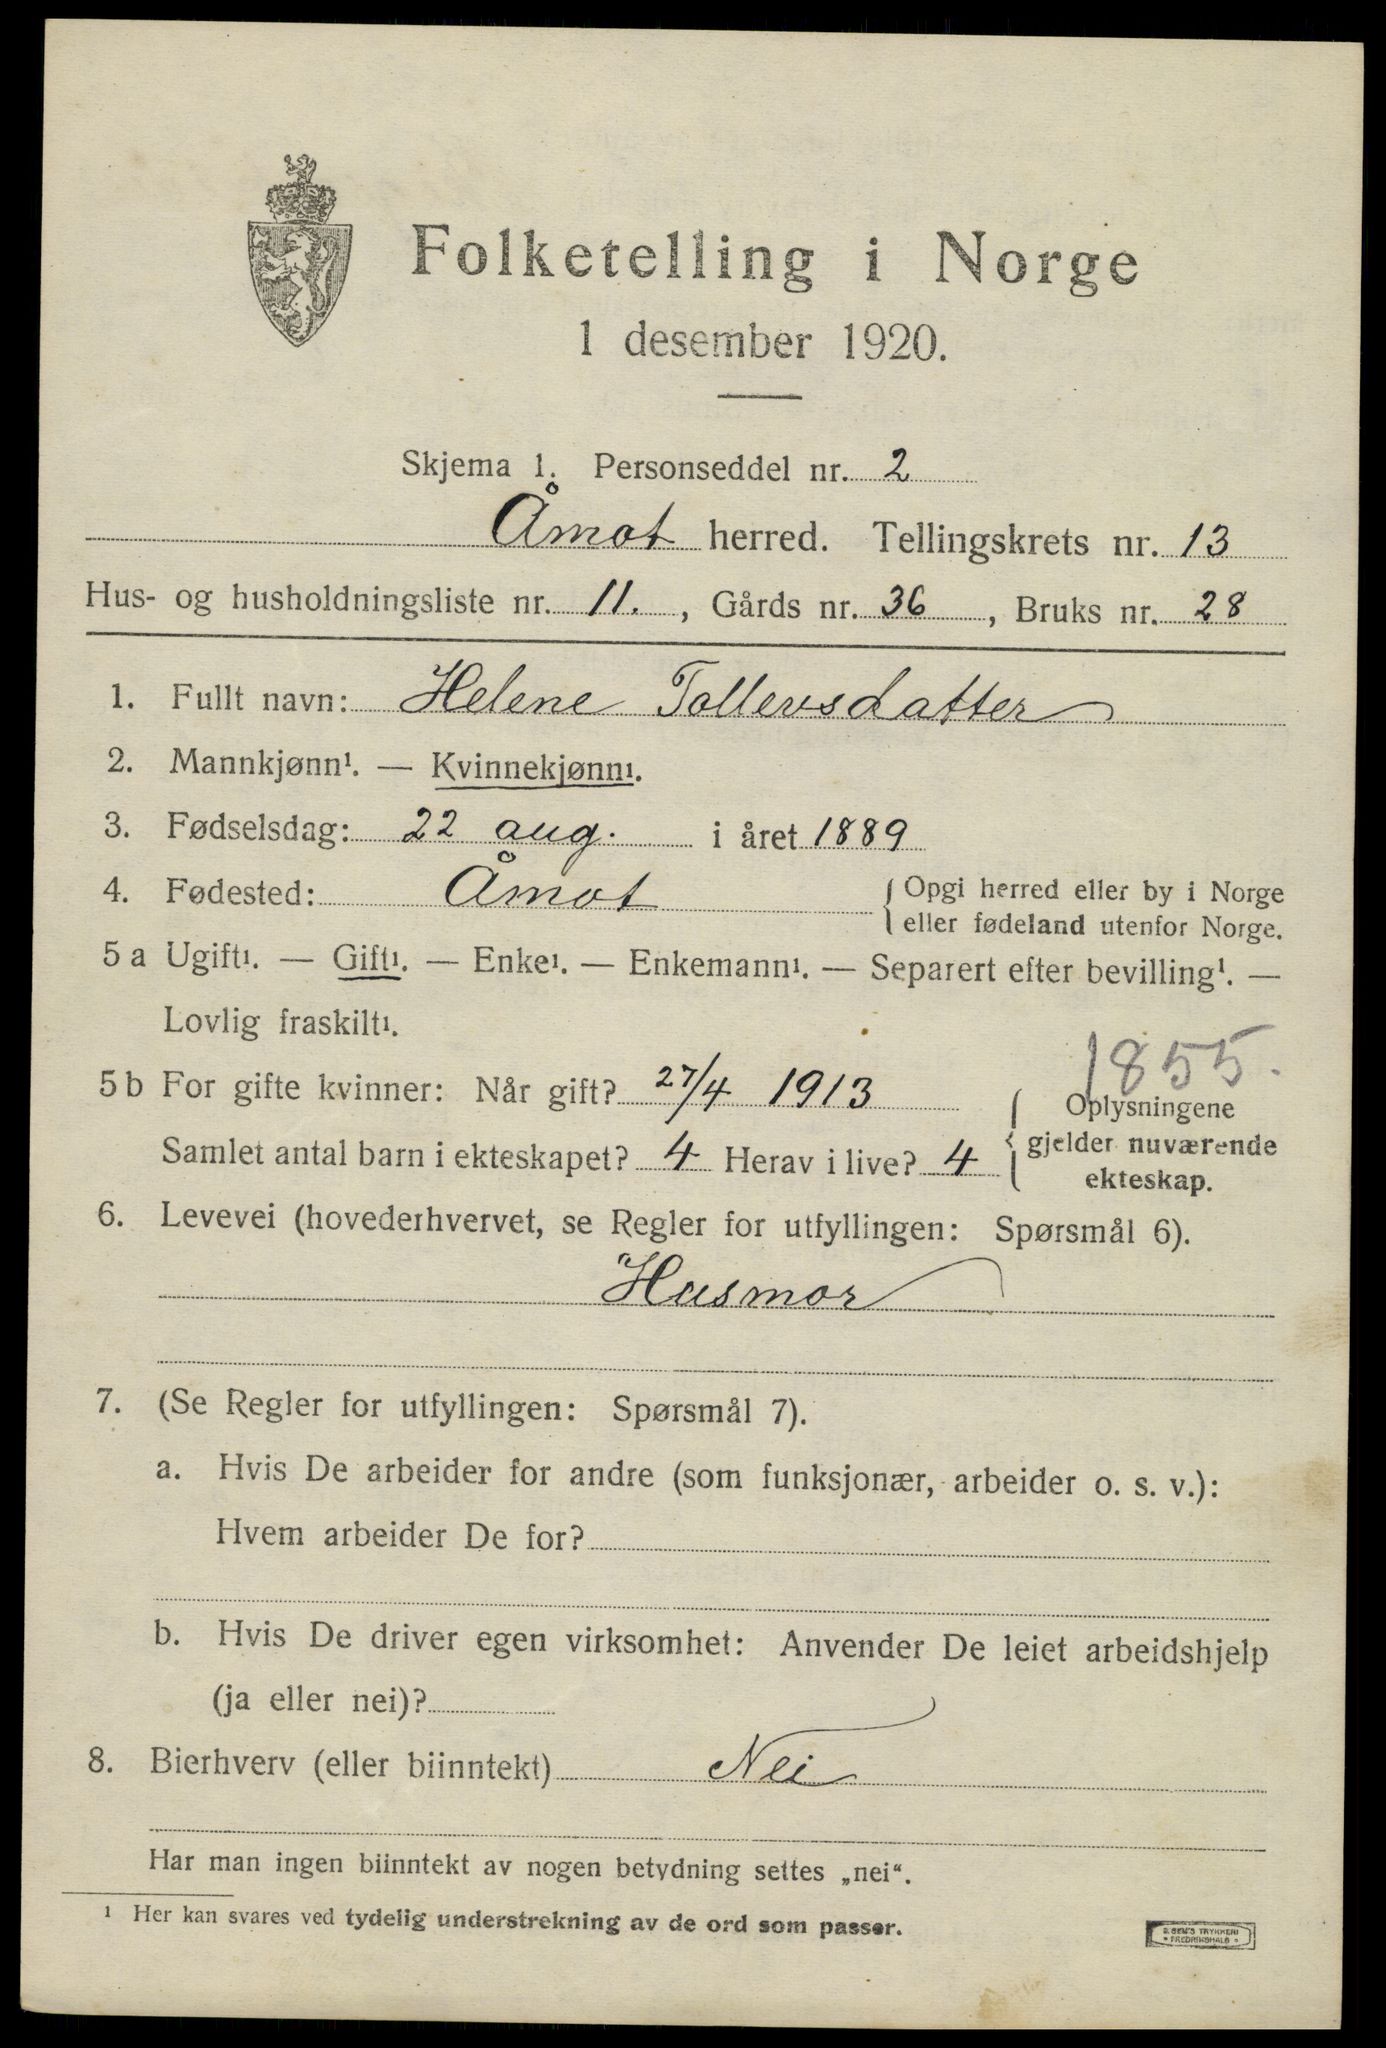 Folketelling i Norge
1 desember 1920.
Skjema 1. Personseddel nr. 2
Åmot herred. Tellingskrets nr. 13
Hus- og husholdningsliste nr. 11. , Gårds nr. 36 , Bruks nr. 28
1. Fullt navn: Helene Tollevsdatter
2. Mannkjønn¹. — Kvinnekjønn¹.
3. Fødselsdag: 22 aug. i året 1889
4. Fødested: Åmot { Opgi herred eller by i Norge
eller fødeland utenfor Norge.
5 a Ugift¹. — Gift¹. — Enke¹. — Enkemann¹. — Separert efter bevilling¹. —
Lovlig fraskilt¹.
1855.
5 b For gifte kvinner: Når gift? 27/4 1913
Samlet antal barn i ekteskapet? 4 Herav i live? 4
{ Oplysningene
gjelder nuværende
ekteskap.
6. Levevei (hovederhvervet, se Regler for utfyllingen: Spørsmål 6).
Husmor
7. (Se Regler for utfyllingen: Spørsmål 7).
a. Hvis De arbeider for andre (som funksjonær, arbeider o. s. v.):
Hvem arbeider De for?
b. Hvis De driver egen virksomhet: Anvender De leiet arbeidshjelp
(ja eller nei)?
8. Bierhverv (eller biinntekt) Nei
Har man ingen biinntekt av nogen betydning settes „nei“.
¹ Her kan svares ved tydelig understrekning av de ord som passer.
E. SEM'S TRYKKERI
• FREDRIKSHALD •